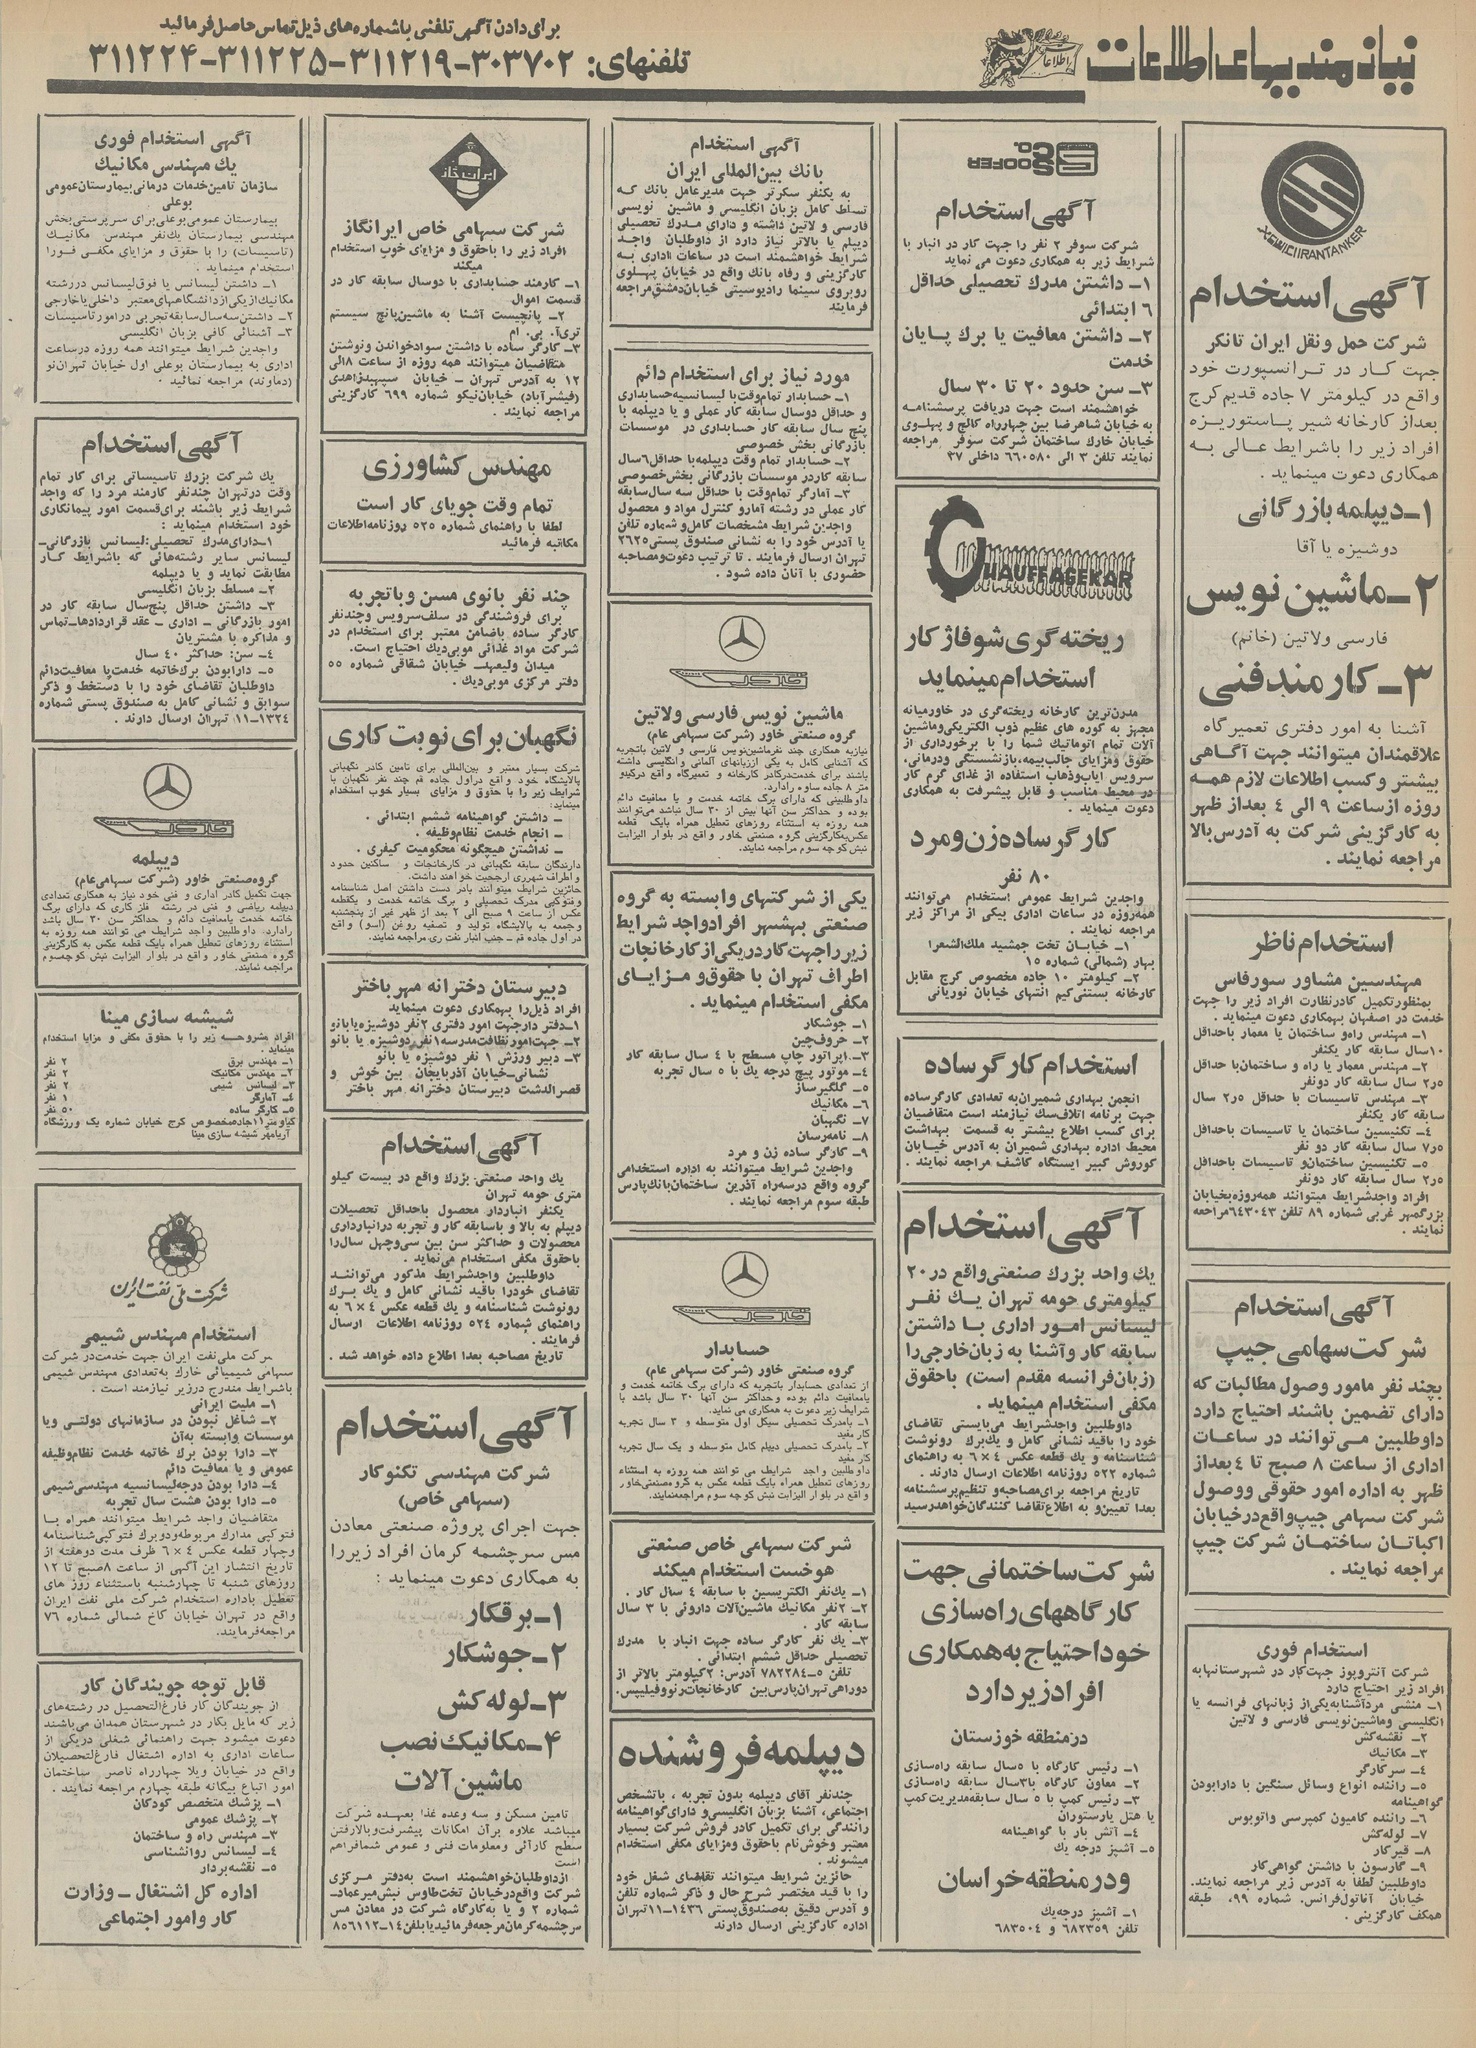 نیازمندیهای اطلاعات
برای دادن آگهی تلفنی با شماره‌های ذیل تماس حاصل فرمائید
تلفنهای: ۳۰۳۷۰۲-۳۱۱۲۱۹-۳۱۱۲۲۵-۳۱۱۲۲۴
IRANTANKER
آگهی استخدام
شرکت حمل و نقل ایران تانکر
جهت کار در ترانسپورت خود
واقع در کیلومتر ۷ جاده قدیم کرج
بعد از کارخانه شیر پاستوریزه
افراد زیر را با شرایط عالی به
همکاری دعوت مینماید .
۱ـ دیپلمه بازرگانی
دوشیزه یا آقا
۲ـ ماشین نویس
فارسی و لاتین (خانم)
۳ـ کارمند فنی
آشنا به امور دفتری تعمیرگاه
علاقمندان میتوانند جهت آگاهی
بیشتر و کسب اطلاعات لازم همه
روزه از ساعت ۹ الی ۴ بعداز ظهر
به کارگزینی شرکت به آدرس بالا
مراجعه نمایند .
استخدام ناظر
مهندسین مشاور سورفاس
بمنظور تکمیل کادر نظارت افراد زیر را جهت
خدمت در اصفهان بهمکاری دعوت مینماید .
۱ـ مهندس راه و ساختمان یا معمار با حداقل
۱۰ سال سابقه کار یکنفر
۲ـ مهندس معمار یا راه و ساختمان با حداقل
۲ر۵ سال سابقه کار دو نفر
۳ـ مهندس تاسیسات با حداقل ۲ر۵ سال
سابقه کار یکنفر
۴ـ تکنیسین ساختمان یا تاسیسات با حداقل
۷ر۵ سال سابقه کار دو نفر
۵ـ تکنیسین ساختمان و تاسیسات با حداقل
۲ر۵ سال سابقه کار دونفر
افراد واجد شرایط میتوانند همه روزه بخیابان
بزرگمهر غربی شماره ۸۹ تلفن ۶۴۳۰۴۳ مراجعه
نمایند .
آگهی استخدام
شرکت سهامی جیپ
بچند نفر مامور وصول مطالبات که
دارای تضمین باشند احتیاج دارد
داوطلبین می‌توانند در ساعات
اداری از ساعت ۸ صبح تا ۴ بعد از
ظهر به اداره امور حقوقی و وصول
شرکت سهامی جیپ واقع در خیابان
اکباتان ساختمان شرکت جیپ
مراجعه نمایند .
استخدام فوری
شرکت آنتروپوز جهت کار در شهرستانها به
افراد زیر احتیاج دارد
۱ـ منشی مرد آشنا به یکی از زبانهای فرانسه یا
انگلیسی و ماشین نویسی فارسی و لاتین
۲ـ نقشه کش
۳ـ مکانیک
۴ـ سرکارگر
۵ـ راننده انواع وسائل سنگین با دارا بودن
گواهینامه
۶ـ راننده کامیون کمپرسی و اتوبوس
۷ـ لوله کش
۸ـ قیرکار
۹ـ گارسون با داشتن گواهی کار
داوطلبین لطفا به آدرس زیر مراجعه نمایند.
خیابان آناتول فرانس، شماره ۹۹، طبقه
همکف کارگزینی .
SOOFER CO.
آگهی استخدام
شرکت سوفر ۲ نفر را جهت کار در انبار با
شرایط زیر به همکاری دعوت می نماید
۱ـ داشتن مدرك تحصیلی حداقل
۶ ابتدائی
۲ـ داشتن معافیت یا برك پایان
خدمت
۳ـ سن حدود ۲۰ تا ۳۰ سال
خواهشمند است جهت دریافت پرسشنامه
به خیابان شاهرضا بین چهارراه کالج و پهلوی
خیابان خارك ساختمان شرکت سوفر مراجعه
نمایند تلفن ۳ الی ۶۶۰۵۸۰ داخلی ۳۷
CHAUFFAGEKAR
ریخته گری شوفاژ کار
استخدام مینماید
مدرن‌ترین کارخانه ریخته‌گری در خاورمیانه
مجهز به کوره های عظیم ذوب الکتریکی و ماشین
آلات تمام اتوماتیک شما را با برخورداری از
حقوق و مزایای جالب بیمه، بازنشستگی و درمانی،
سرویس ایاب و ذهاب استفاده از غذای گرم کار
در محیط مناسب و قابل پیشرفت به همکاری
دعوت مینماید .
کارگر ساده زن و مرد
۸۰ نفر
واجدین شرایط عمومی استخدام می‌توانند
همه روزه در ساعات اداری بیکی از مراکز زیر
مراجعه نمایند .
۱ـ خیابان تخت جمشید ملك الشعرا
بهار (شمالی) شماره ۱۵
۲ـ کیلومتر ۱۰ جاده مخصوص کرج مقابل
کارخانه بستنی کیم انتهای خیابان نوریانی
استخدام کارگر ساده
انجمن بهداری شمیران به تعدادی کارگر ساده
جهت برنامه اتلاف سك نیازمند است متقاضیان
برای کسب اطلاع بیشتر به قسمت بهداشت
محیط اداره بهداری شمیران به آدرس خیابان
کوروش کبیر ایستگاه کاشف مراجعه نمایند .
آگهی استخدام
یك واحد بزرك صنعتی واقع در ۲۰
کیلومتری حومه تهران یك نفر
لیسانس امور اداری با داشتن
سابقه کار و آشنا به زبان خارجی را
(زبان فرانسه مقدم است) با حقوق
مکفی استخدام مینماید .
داوطلبین واجد شرایط می‌بایستی تقاضای
خود را باقید نشانی کامل و یك برك رونوشت
شناسنامه و یك قطعه عکس ۴ × ۶ به راهنمای
شماره ۵۲۲ روزنامه اطلاعات ارسال دارند .
تاریخ مراجعه برای مصاحبه و تنظیم پرسشنامه
بعدا تعیین و به اطلاع تقاضا کنندگان خواهد رسید
شرکت ساختمانی جهت
کارگاههای راه سازی
خود احتیاج به همکاری
افراد زیر دارد
در منطقه خوزستان
۱ـ رئیس کارگاه با ۵ سال سابقه راه سازی
۲ـ معاون کارگاه با ۳ سال سابقه راه سازی
۳ـ رئیس کمپ با ۵ سال سابقه مدیریت کمپ
یا هتل یا رستوران
۴ـ آتش بار با گواهینامه
۵ـ آشپز درجه یك
و در منطقه خراسان
۱ـ آشپز درجه یك
تلفن ۶۸۲۳۵۹ و ۶۸۳۵۰۴
آگهی استخدام
بانك بین‌المللی ایران
به یکنفر سکرتر جهت مدیر عامل بانك که
تسلط کامل بزبان انگلیسی و ماشین نویسی
فارسی و لاتین داشته و دارای مدرك تحصیلی
دیپلم یا بالاتر نیاز دارد از داوطلبان واجد
شرایط خواهشمند است در ساعات اداری به
کارگزینی و رفاه بانك واقع در خیابان پهلوی
روبروی سینما رادیوسیتی خیابان دمشق مراجعه
فرمایند
مورد نیاز برای استخدام دائم
۱ـ حسابدار تمام وقت با لیسانسیه حسابداری
و حداقل دو سال سابقه کار عملی و یا دیپلمه با
پنج سال سابقه کار حسابداری در موسسات
بازرگانی بخش خصوصی
۲ـ حسابدار تمام وقت دیپلمه با حداقل ۶ سال
سابقه کار در موسسات بازرگانی بخش خصوصی
۳ـ آمارگر تمام وقت با حداقل سه سال سابقه
کار عملی در رشته آمار و کنترل مواد و محصول
واجدین شرایط مشخصات کامل و شماره تلفن
یا آدرس خود را به نشانی صندوق پستی ۲۶۲۵
تهران ارسال فرمایند . تا ترتیب دعوت و مصاحبه
حضوری با آنان داده شود .
خاور
ماشین نویس فارسی و لاتین
گروه صنعتی خاور (شرکت سهامی عام)
نیاز به همکاری چند نفر ماشین نویس فارسی و لاتین باتجربه
که آشنایی کامل به یکی از زبانهای آلمانی و انگلیسی داشته
باشند برای خدمت در کادر کارخانه و تعمیرگاه واقع در کیلو
متر ۸ جاده ساوه را دارد.
داوطلبینی که دارای برگ خاتمه خدمت و یا معافیت دائم
بوده و حداکثر سن آنها بیش از ۳۰ سال نباشد می‌توانند
همه روزه به استثناء روزهای تعطیل همراه بایك قطعه
عکس به کارگزینی گروه صنعتی خاور واقع در بلوار الیزابت
نبش کوچه سوم مراجعه نمایند.
یکی از شرکتهای وابسته به گروه
صنعتی بهشهر افراد واجد شرایط
زیر را جهت کار در یکی از کارخانجات
اطراف تهران با حقوق و مزایای
مکفی استخدام مینماید .
۱ـ جوشکار
۲ـ حروف چین
۳ـ اپراتور چاپ مسطح با ۴ سال سابقه کار
۴ـ موتور پیچ درجه یك با ۵ سال تجربه
۵ـ گلگیرساز
۶ـ مکانیك
۷ـ نگهبان
۸ـ نامه‌رسان
۹ـ کارگر ساده زن و مرد
واجدین شرایط میتوانند به اداره استخدامی
گروه واقع درسه راه آذرین ساختمان بانك پارس
طبقه سوم مراجعه نمایند .
خاور
حسابدار
گروه صنعتی خاور (شرکت سهامی عام)
از تعدادی حسابدار باتجربه که دارای برگ خاتمه خدمت و
یا معافیت دائم بوده و حداکثر سن آنها ۳۰ سال باشد با
شرایط زیر دعوت به همکاری می نماید.
۱ـ با مدرک تحصیلی سیکل اول متوسطه و ۳ سال تجربه
کار مفید
۲ـ با مدرک تحصیلی دیپلم کامل متوسطه و یک سال تجربه
کار مفید
داوطلبین واجد شرایط می توانند همه روزه به استثناء
روزهای تعطیل همراه بایك قطعه عکس به گروه صنعتی خاور
واقع در بلوار الیزابت نبش کوچه سوم مراجعه نمایند.
شرکت سهامی خاص صنعتی
هوخست استخدام میکند
۱ـ یك نفر الکتریسین با سابقه ۴ سال کار .
۲ـ ۲ نفر مکانیك ماشین‌آلات داروئی با ۳ سال
سابقه کار .
۳ـ یك نفر کارگر ساده جهت انبار با مدرك
تحصیلی حداقل ششم ابتدائی .
تلفن ۵ـ۷۸۲۲۸۴ آدرس: ۲ کیلومتر بالاتر از
دوراهی تهران پارس بین کارخانجات رنو و فیلیپس.
دیپلمه فروشنده
چند نفر آقای دیپلمه بدون تجربه ، با تشخص
اجتماعی، آشنا بزبان انگلیسی و دارای گواهینامه
رانندگی برای تکمیل کادر فروش شرکت بسیار
معتبر و خوش نام با حقوق و مزایای مکفی استخدام
میشوند .
حائزین شرایط میتوانند تقاضای شغل خود
را با قید مختصر شرح حال و ذکر شماره تلفن
و آدرس دقیق به صندوق پستی ۱۴۳۶-۱۱ تهران
اداره کارگزینی ارسال دارند
ایران گاز
شرکت سهامی خاص ایرانگاز
افراد زیر را باحقوق و مزایای خوب استخدام
میکند
۱ـ کارمند حسابداری با دوسال سابقه کار در
قسمت اموال
۲ـ پانچیست آشنا به ماشین پانچ سیستم
تری‌آ. بی. ام
۳ـ کارگر ساده با داشتن سواد خواندن و نوشتن
متقاضیان میتوانند همه روزه از ساعت ۸ الی
۱۲ به آدرس تهران ـ خیابان سپهبد زاهدی
(فیشرآباد) خیابان نیکو شماره ۶۹۹ کارگزینی
مراجعه نمایند .
مهندس کشاورزی
تمام وقت جویای کار است
لطفا با راهنمای شماره ۵۲۵ روزنامه اطلاعات
مکاتبه فرمائید
چند نفر بانوی مسن و با تجربه
برای فروشندگی در سلف سرویس و چند نفر
کارگر ساده با ضامن معتبر برای استخدام در
شرکت مواد غذائی موبی‌دیك احتیاج است.
میدان ولیعهد ـ خیابان شقاقی شماره ۵۵
دفتر مرکزی موبی‌دیك .
نگهبان برای نوبت کاری
شرکت بسیار معتبر و بین‌المللی برای تامین کادر نگهبانی
پالایشگاه خود واقع دراول جاده قم چند نفر نگهبان با
شرایط زیر را با حقوق و مزایای بسیار خوب استخدام
مینماید:
ـ داشتن گواهینامه ششم ابتدائی .
ـ انجام خدمت نظام‌وظیفه .
ـ نداشتن هیچگونه محکومیت کیفری .
دارندگان سابقه نگهبانی در کارخانجات و ساکنین حدود
و اطراف شهرری ارجحیت خواهند داشت.
حائزین شرایط میتوانند بادر دست داشتن اصل شناسنامه
وفتوکپی مدرک تحصیلی و برگ خاتمه خدمت و یکقطعه
عکس از ساعت ۹ صبح الی ۲ بعد از ظهر غیر از پنجشنبه
وجمعه به پالایشگاه تولید و تصفیه روغن (اسو) واقع
در اول جاده قم ـ جنب انبار نفت ری مراجعه نمایند.
دبیرستان دخترانه مهر باختر
افراد ذیل را بهمکاری دعوت مینماید
۱ـ دفتر دار جهت امور دفتری ۲ نفر دوشیزه یا بانو
۲ـ جهت امور نظافت مدرسه ۱ نفر دوشیزه یا بانو
۳ـ دبیر ورزش ۱ نفر دوشیزه یا بانو
نشانی ـ خیابان آذربایجان بین خوش و
قصرالدشت دبیرستان دخترانه مهر باختر
آگهی استخدام
یك واحد صنعتی بزرك واقع در بیست کیلو
متری حومه تهران
یکنفر انباردار محصول با حداقل تحصیلات
دیپلم به بالا و با سابقه کار و تجربه در انبارداری
محصولات و حداکثر سن بین سی و چهل سال را
با حقوق مکفی استخدام می‌نماید .
داوطلبین واجد شرایط مذکور می‌توانند
تقاضای خود را باقید نشانی کامل و یك برك
رونوشت شناسنامه و یك قطعه عکس ۴ × ۶ به
راهنمای شماره ۵۲۴ روزنامه اطلاعات ارسال
فرمایند .
تاریخ مصاحبه بعدا اطلاع داده خواهد شد .
آگهی استخدام
شرکت مهندسی تکنوکار
(سهامی خاص)
جهت اجرای پروژه صنعتی معادن
مس سرچشمه کرمان افراد زیر را
به همکاری دعوت مینماید :
۱ـ برقکار
۲ـ جوشکار
۳ـ لوله کش
۴ـ مکانیك نصب
ماشین آلات
تامین مسکن و سه وعده غذا بعهده شرکت
میباشد علاوه برآن امکانات پیشرفت و بالارفتن
سطح کارآئی و معلومات فنی و عمومی شما فراهم
است
از داوطلبان خواهشمند است به دفتر مرکزی
شرکت واقع در خیابان تخت طاوس نبش میرعماد ـ
شماره ۲ و یا به کارگاه شرکت در معادن مس
سرچشمه کرمان مراجعه فرمائید یا بلفن ۱۴-۸۵۶۱۱۲
آگهی استخدام فوری
یك مهندس مکانیك
سازمان تامین خدمات درمانی بیمارستان عمومی
بوعلی
بیمارستان عمومی بوعلی برای سرپرستی بخش
مهندسی بیمارستان یك نفر مهندس مکانیك
(تاسیسات) را با حقوق و مزایای مکفی فورا
استخدام مینماید .
۱ـ داشتن لیسانس یا فوق لیسانس در رشته
مکانیك از یکی از دانشگاههای معتبر داخلی یا خارجی
۲ـ داشتن سه سال سابقه تجربی در امور تاسیسات
۳ـ آشنائی کافی بزبان انگلیسی
واجدین شرایط میتوانند همه روزه در ساعت
اداری به بیمارستان بوعلی اول خیابان تهران نو
(دماوند) مراجعه نمائید .
آگهی استخدام
یك شرکت بزرك تاسیساتی برای کار تمام
وقت در تهران چند نفر کارمند مرد را که واجد
شرایط زیر باشند برای قسمت امور پیمانکاری
خود استخدام مینماید :
۱ـ دارای مدرك تحصیلی: لیسانس بازرگانی ـ
لیسانس سایر رشته‌هائی که با شرایط کار
مطابقت نماید و یا دیپلمه
۲ـ مسلط بزبان انگلیسی
۳ـ داشتن حداقل پنج سال سابقه کار در
امور بازرگانی ـ اداری ـ عقد قراردادها ـ تماس
و مذاکره با مشتریان
۴ـ سن: حداکثر ۴۰ سال
۵ـ دارا بودن برك خاتمه خدمت یا معافیت دائم
داوطلبان تقاضای خود را با دستخط و ذکر
سوابق و نشانی کامل به صندوق پستی شماره
۱۳۲۴-۱۱ تهران ارسال دارند .
خاور
دیپلمه
گروه صنعتی خاور (شرکت سهامی عام)
جهت تکمیل کادر اداری و فنی خود نیاز به همکاری تعدادی
دیپلمه ریاضی و فنی در رشته فلز کاری که دارای برگ
خاتمه خدمت یا معافیت دائم و حداکثر سن ۳۰ سال باشد
را دارد. داوطلبین واجد شرایط می توانند همه روزه به
استثناء روزهای تعطیل همراه بایك قطعه عکس به کارگزینی
گروه صنعتی خاور واقع در بلوار الیزابت نبش کوچه سوم
مراجعه نمایند.
شیشه سازی مینا
افراد مشروحه زیر را با حقوق مکفی و مزایا استخدام
مینماید .
۱ـ مهندس برق ۲ نفر
۲ـ مهندس مکانیک ۲ نفر
۳ـ لیسانس شیمی ۲ نفر
۴ـ آمارگر ۱ نفر
۵ـ کارگر ساده ۵۰ نفر
کیلومتر ۱۱ جاده مخصوص کرج خیابان شماره یک ورزشگاه
آریامهر شیشه سازی مینا
شرکت ملی نفت ایران
استخدام مهندس شیمی
شرکت ملی نفت ایران جهت خدمت در شرکت
سهامی شیمیائی خارك به تعدادی مهندس شیمی
با شرایط مندرج در زیر نیازمند است .
۱ـ ملیت ایرانی
۲ـ شاغل نبودن در سازمانهای دولتی و یا
موسسات وابسته به آن
۳ـ دارا بودن برك خاتمه خدمت نظام وظیفه
عمومی و یا معافیت دائم
۴ـ دارا بودن درجه لیسانسیه مهندسی شیمی
۵ـ دارا بودن هشت سال تجربه
متقاضیان واجد شرایط میتوانند همراه با
فتوکپی مدارك مربوطه و دو برك فتوکپی شناسنامه
و چهار قطعه عکس ۴ × ۶ ظرف مدت دو هفته از
تاریخ انتشار این آگهی از ساعت ۸ صبح تا ۱۲
روزهای شنبه تا چهارشنبه باستثناء روز های
تعطیل باداره استخدام شرکت ملی نفت ایران
واقع در تهران خیابان کاخ شمالی شماره ۷۶
مراجعه فرمایند.
قابل توجه جویندگان کار
از جویندگان کار فارغ‌التحصیل در رشته‌های
زیر که مایل بکار در شهرستان همدان می‌باشند
دعوت میشود جهت راهنمائی شغلی در یکی از
ساعات اداری به اداره اشتغال فارغ‌التحصیلان
واقع در خیابان ویلا چهارراه ناصر ساختمان
امور اتباع بیگانه طبقه چهارم مراجعه نمایند .
۱ـ پزشك متخصص کودکان
۲ـ پزشك عمومی
۳ـ مهندس راه و ساختمان
۴ـ لیسانس روانشناسی
۵ـ نقشه بردار
اداره کل اشتغال ـ وزارت
کار و امور اجتماعی